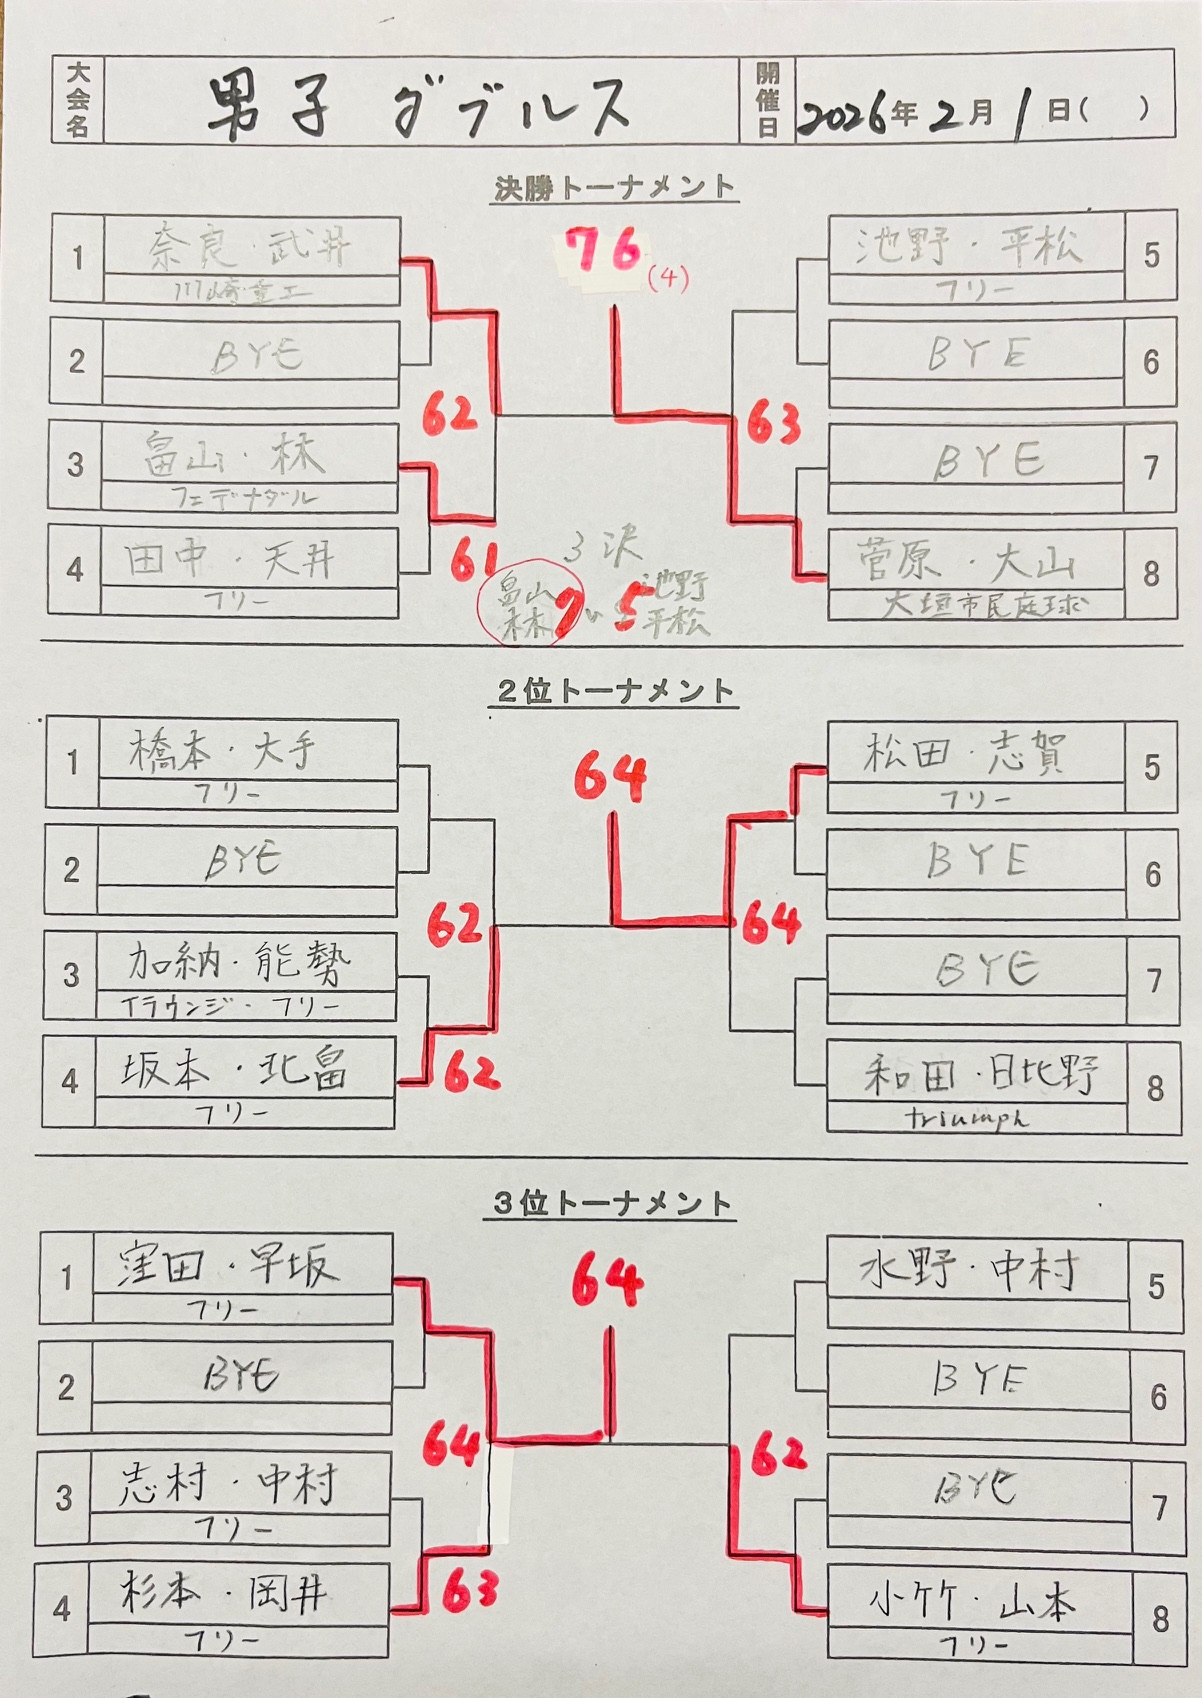 大会名 男子 ダブルス 開催日 2026年2月1日( )
決勝トーナメント
76(4)
1 奈良・武井
川崎重工
2 BYE
62
3 畠山・林
フェデナダル
61
4 田中・天井
フリー
5 池野・平松
フリー
6 BYE
63
7 BYE
8 菅原・大山
大垣市民庭球
3決
畠山 池野
林 7 5 平松
2位トーナメント
64
1 橋本・大手
フリー
2 BYE
62
3 加納・能勢
イラウンジ・フリー
62
4 坂本・北畠
フリー
5 松田・志賀
フリー
6 BYE
64
7 BYE
8 和田・日比野
triumph
3位トーナメント
64
1 窪田・早坂
フリー
2 BYE
64
3 志村・中村
フリー
63
4 杉本・岡井
フリー
5 水野・中村
6 BYE
62
7 BYE
8 小竹・山本
フリー